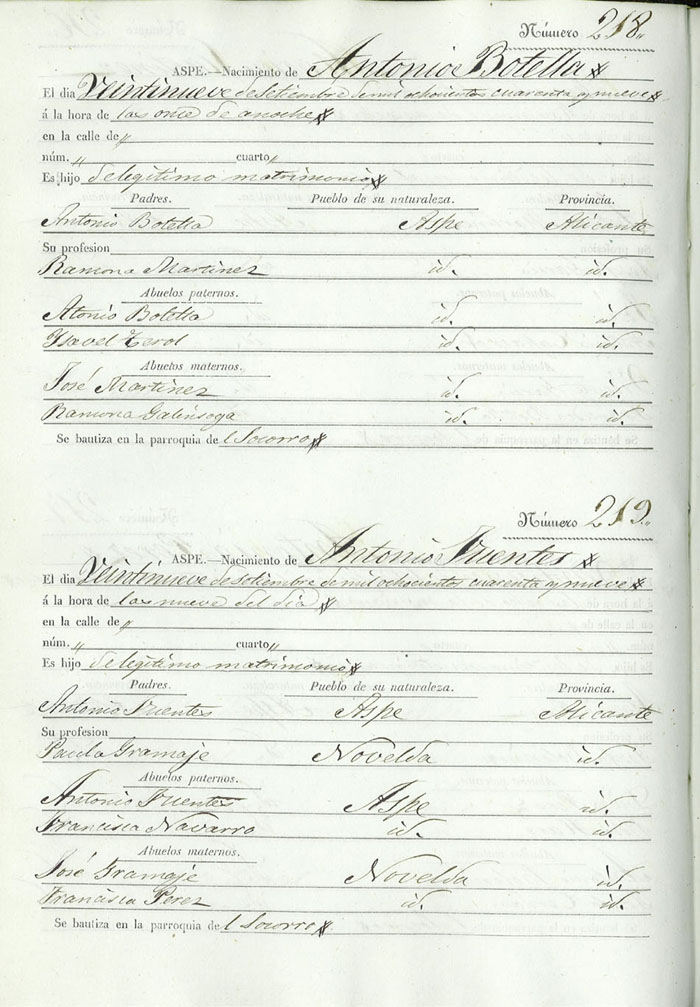 Número 218.
ASPE.—Nacimiento de Antonio Botella
El dia Veintinueve de setiembre de mil ochocientos cuarenta y nueve
á la hora de las once de anoche
en la calle de „
núm. „ cuarto „
Es hijo de legitimo matrimonio
Padres. Pueblo de su naturaleza. Provincia.
Antonio Botella Aspe Alicante
Su profesion
Ramona Martinez id. id.
Abuelos paternos.
Atonio Botella id. id.
Ysavel Terol id. id.
Abuelos maternos.
José Martinez id. id.
Ramona Galinsoga id. id.
Se bautiza en la parroquia de l Socorro
Número 219.
ASPE.—Nacimiento de Antonio Fuentes
El dia Veintinueve de setiembre de mil ochocientos cuarenta y nueve
á la hora de las nueve del dia
en la calle de „
núm. „ cuarto „
Es hijo de legitimo matrimonio
Padres. Pueblo de su naturaleza. Provincia.
Antonio Fuentes Aspe Alicante
Su profesion
Paula Gramaje Novelda id.
Abuelos paternos.
Antonio Fuentes Aspe id.
Francisca Navarro id. id.
Abuelos maternos.
José Gramaje Novelda id.
Francisca Perez id. id.
Se bautiza en la parroquia de l Socorro